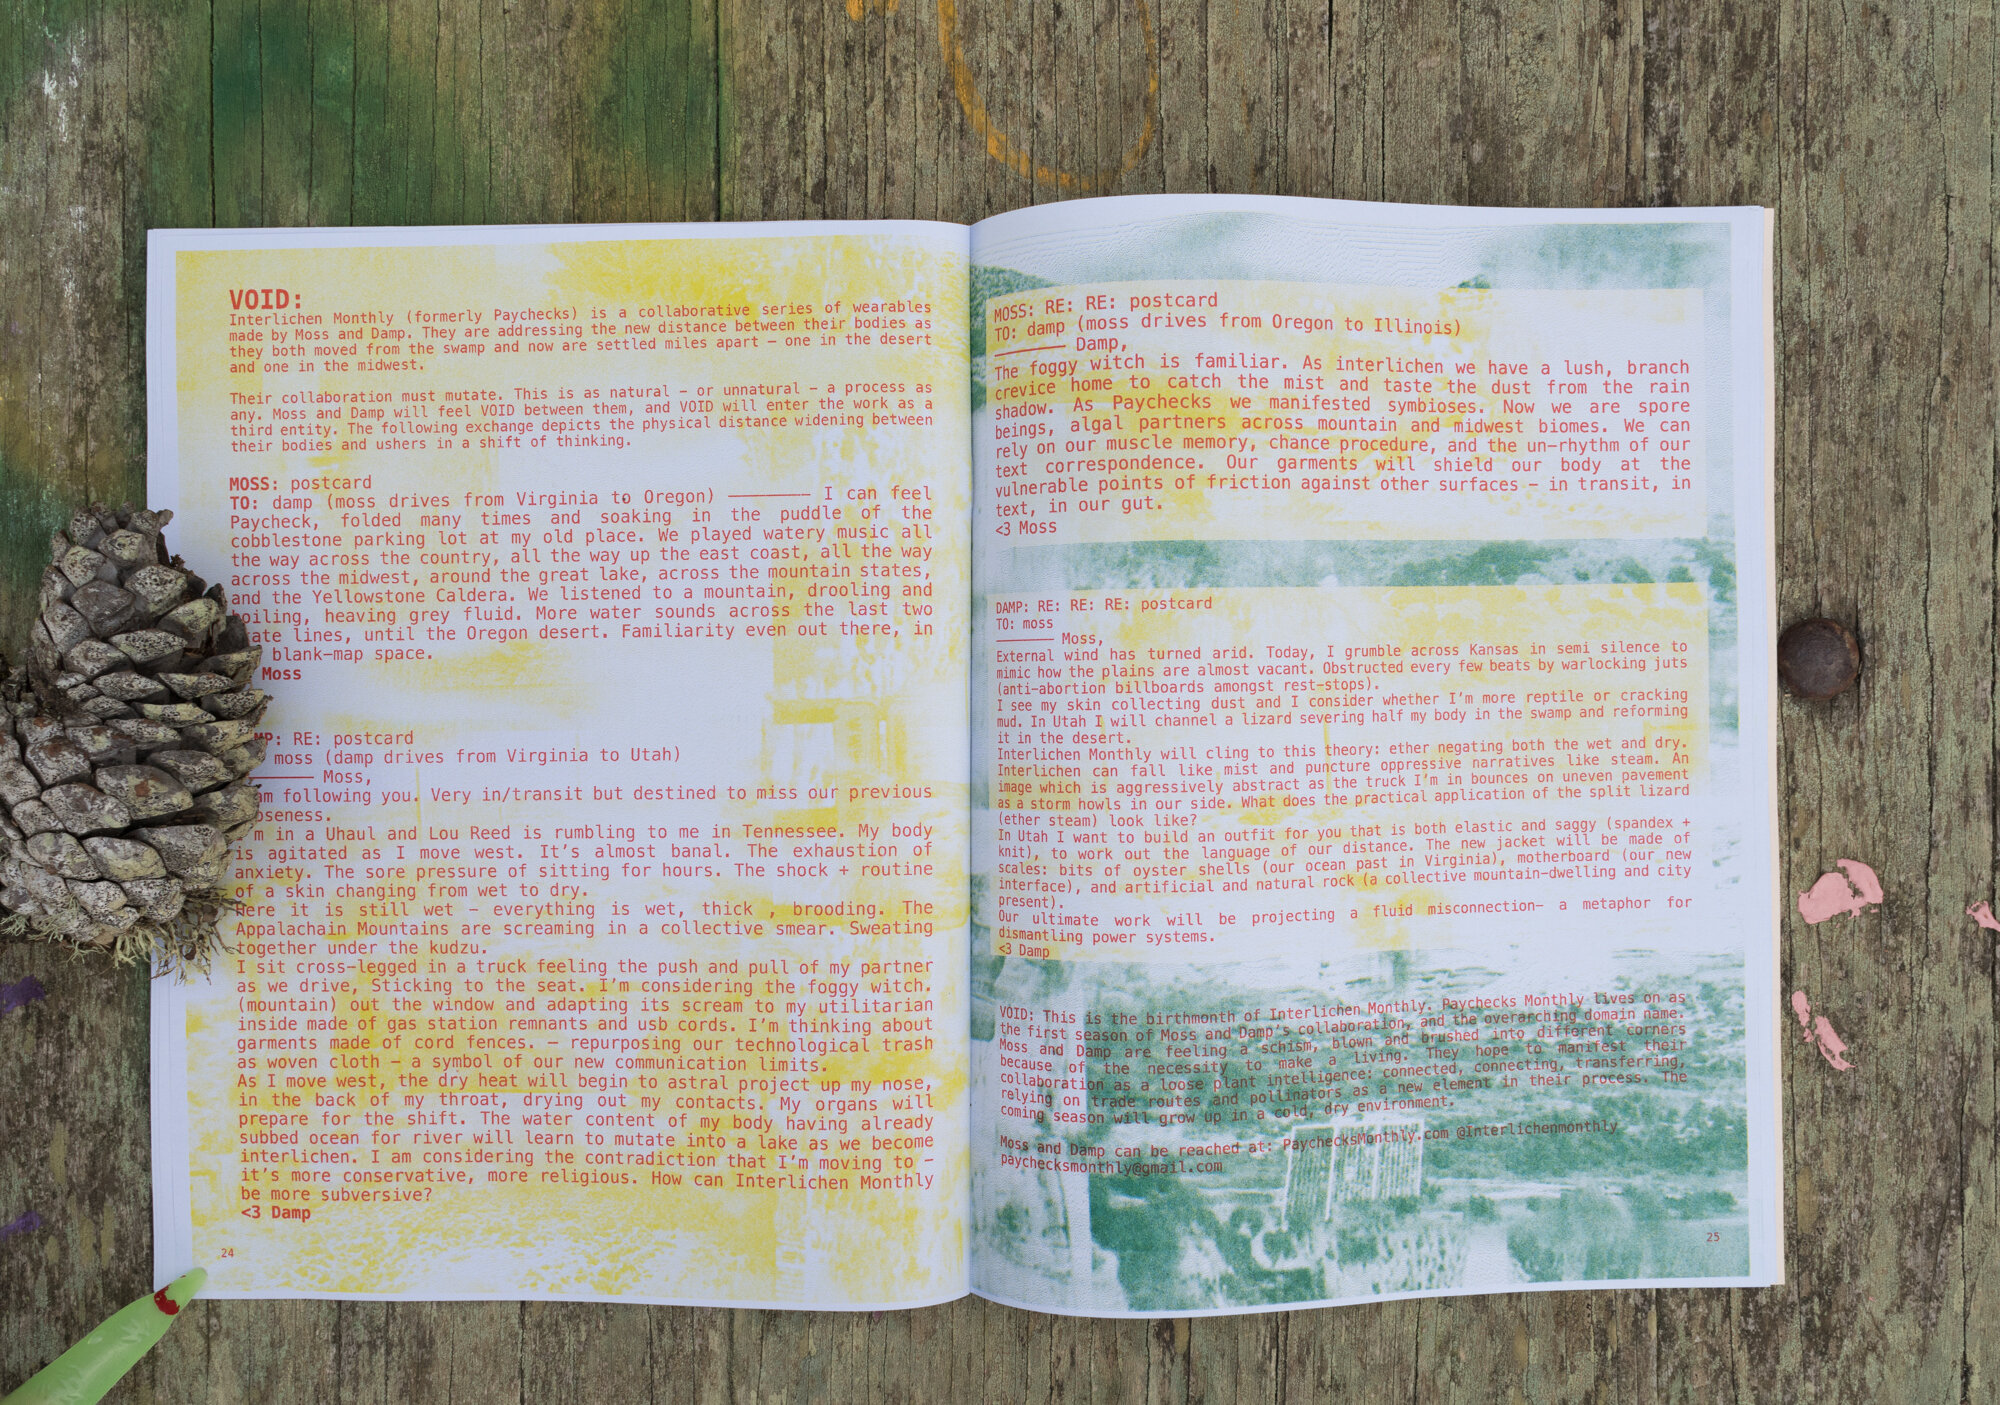 VOID:
Interlichen Monthly (formerly Paychecks) is a collaborative series of wearables
made by Moss and Damp. They are addressing the new distance between their bodies as
they both moved from the swamp and now are settled miles apart – one in the desert
and one in the midwest.
Their collaboration must mutate. This is as natural – or unnatural – a process as
any. Moss and Damp will feel VOID between them, and VOID will enter the work as a
third entity. The following exchange depicts the physical distance widening between
their bodies and ushers in a shift of thinking.
MOSS: postcard
TO: damp (moss drives from Virginia to Oregon) ———————— I can feel
Paycheck, folded many times and soaking in the puddle of the
cobblestone parking lot at my old place. We played watery music all
the way across the country, all the way up the east coast, all the way
across the midwest, around the great lake, across the mountain states,
and the Yellowstone Caldera. We listened to a mountain, drooling and
boiling, heaving grey fluid. More water sounds across the last two
state lines, until the Oregon desert. Familiarity even out there, in
blank-map space.
Moss
MP: RE: postcard
moss (damp drives from Virginia to Utah)
——————— Moss,
am following you. Very in/transit but destined to miss our previous
oseness.
I'm in a Uhaul and Lou Reed is rumbling to me in Tennessee. My body
is agitated as I move west. It's almost banal. The exhaustion of
anxiety. The sore pressure of sitting for hours. The shock + routine
of a skin changing from wet to dry.
Here it is still wet – everything is wet, thick , brooding. The
Appalachain Mountains are screaming in a collective smear. Sweating
together under the kudzu.
I sit cross-legged in a truck feeling the push and pull of my partner
as we drive, Sticking to the seat. I'm considering the foggy witch.
(mountain) out the window and adapting its scream to my utilitarian
inside made of gas station remnants and usb cords. I'm thinking about
garments made of cord fences. – repurposing our technological trash
as woven cloth – a symbol of our new communication limits.
As I move west, the dry heat will begin to astral project up my nose,
in the back of my throat, drying out my contacts. My organs will
prepare for the shift. The water content of my body having already
subbed ocean for river will learn to mutate into a lake as we become
interlichen. I am considering the contradiction that I'm moving to –
it's more conservative, more religious. How can Interlichen Monthly
be more subversive?
<3 Damp
24
MOSS: RE: RE: postcard
TO: damp (moss drives from Oregon to Illinois)
——————— Damp,
The foggy witch is familiar. As interlichen we have a lush, branch
crevice home to catch the mist and taste the dust from the rain
shadow. As Paychecks we manifested symbioses. Now we are spore
beings, algal partners across mountain and midwest biomes. We can
rely on our muscle memory, chance procedure, and the un-rhythm of our
text correspondence. Our garments will shield our body at the
vulnerable points of friction against other surfaces – in transit, in
text, in our gut.
<3 Moss
DAMP: RE: RE: RE: postcard
TO: moss
——————— Moss,
External wind has turned arid. Today, I grumble across Kansas in semi silence to
mimic how the plains are almost vacant. Obstructed every few beats by warlocking juts
(anti-abortion billboards amongst rest-stops).
I see my skin collecting dust and I consider whether I'm more reptile or cracking
mud. In Utah I will channel a lizard severing half my body in the swamp and reforming
it in the desert.
Interlichen Monthly will cling to this theory: ether negating both the wet and dry.
Interlichen can fall like mist and puncture oppressive narratives like steam. An
image which is aggressively abstract as the truck I'm in bounces on uneven pavement
as a storm howls in our side. What does the practical application of the split lizard
(ether steam) look like?
In Utah I want to build an outfit for you that is both elastic and saggy (spandex +
knit), to work out the language of our distance. The new jacket will be made of
scales: bits of oyster shells (our ocean past in Virginia), motherboard (our new
interface), and artificial and natural rock (a collective mountain-dwelling and city
present).
Our ultimate work will be projecting a fluid misconnection– a metaphor for
dismantling power systems.
<3 Damp
VOID: This is the birthmonth of Interlichen Monthly. Paychecks Monthly lives on as
the first season of Moss and Damp's collaboration, and the overarching domain name.
Moss and Damp are feeling a schism, blown and brushed into different corners
because of the necessity to make a living. They hope to manifest their
collaboration as a loose plant intelligence: connected, connecting, transferring,
relying on trade routes and pollinators as a new element in their process. The
coming season will grow up in a cold, dry environment.
Moss and Damp can be reached at: PaychecksMonthly.com @Interlichenmonthly
paychecksmonthly@gmail.com
25